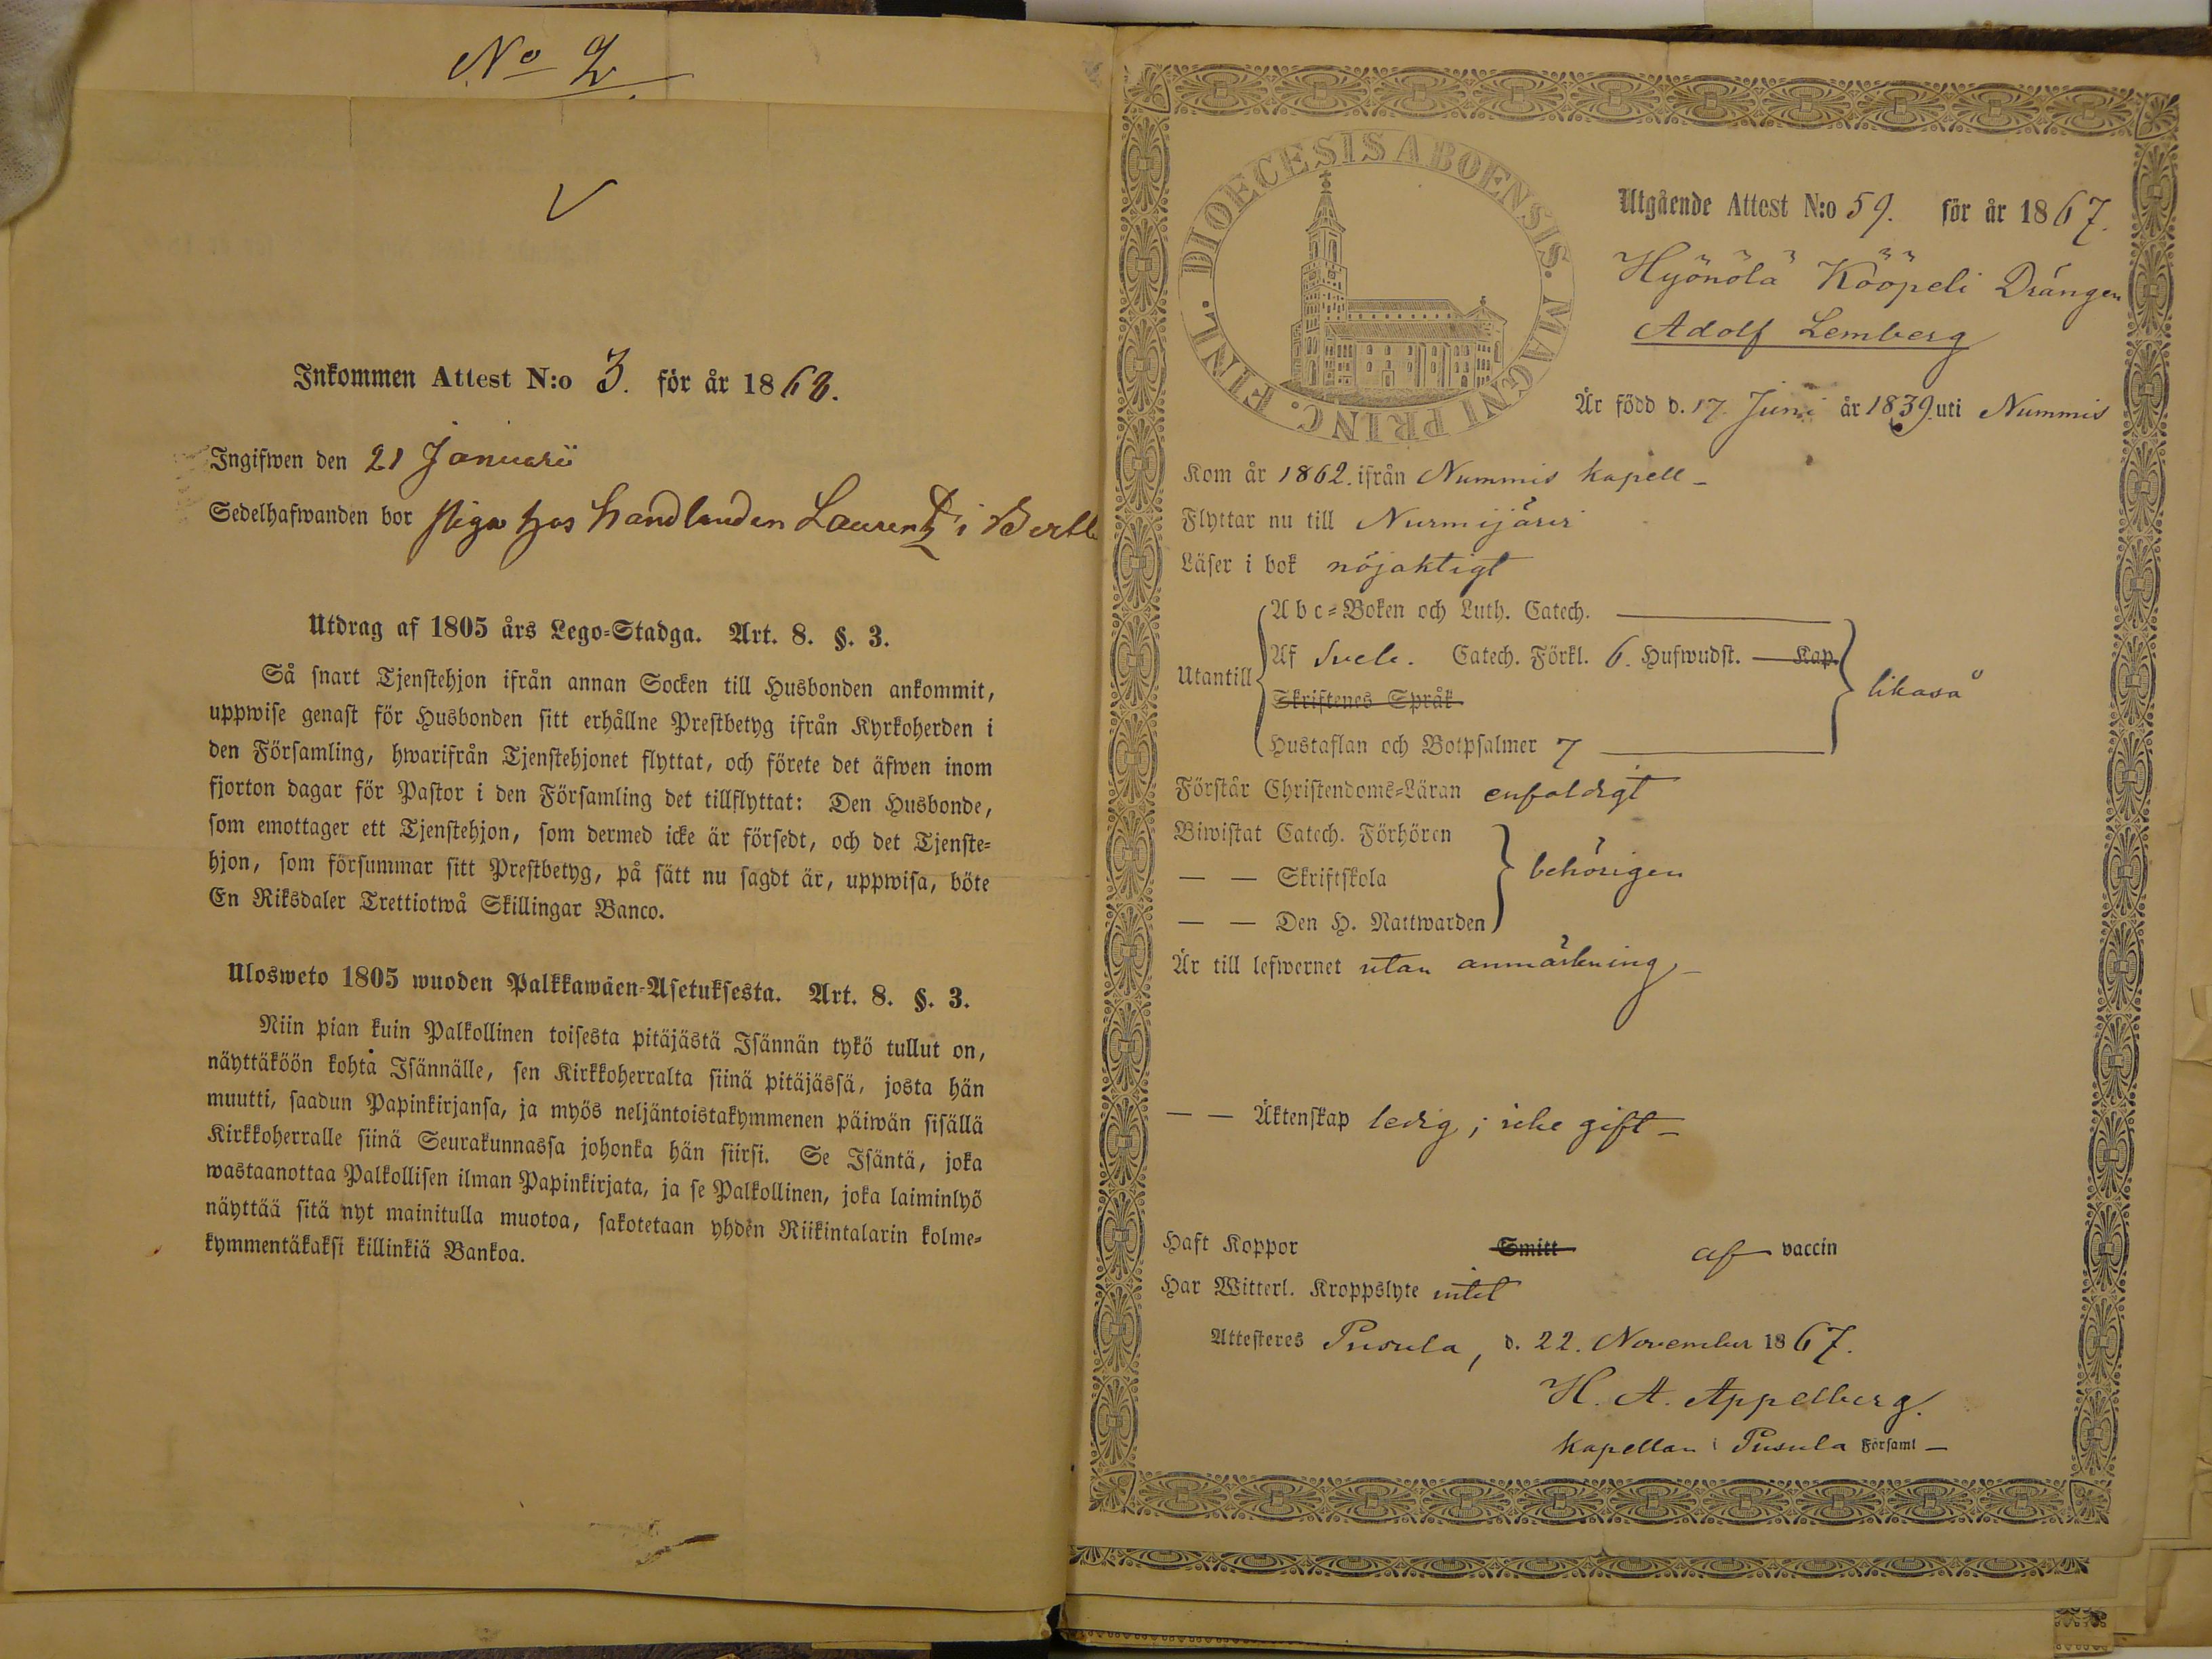 No 2
Inkommen Attest N:o 3. för år 1868.
Ingifwen den 21 Januarii
Sedelhafwanden bor piga hos handlanden Laurent i
Utdrag af 1805 års Lego=Stadga. Art. 8. §. 3.
Så snart Tjenstehjon ifrån annan Socken till Husbonden ankommit,
uppwise genast för Husbonden sitt erhållne Prestbetyg ifrån Kyrkoherden i
den Församling, hwarifrån Tjenstehjonet flyttat, och förete det äfwen inom
fjorton dagar för Pastor i den Församling det tillflyttat: Den Husbonde,
som emottager ett Tjenstehjon, som dermed icke är försedt, och det Tjenste=
hjon, som försummar sitt Prestbetyg, på sätt nu sagdt är, uppwisa, böte
En Riksdaler Trettiotwå Skillingar Banco.
Ulosweto 1805 wuoden Palkkawäen=Asetuksesta. Art. 8. §. 3.
Niin pian kuin Palkollinen toisesta pitäjästä Isännän tykö tullut on,
näyttäköön kohta Isännälle, sen Kirkkoherralta siinä pitäjässä, josta hän
muutti, saadun Papinkirjansa, ja myös neljäntoistakymmenen päiwän sisällä
Kirkkoherralle siinä Seurakunnassa johonka hän siirsi. Se Isäntä, joka
wastaanottaa Palkollisen ilman Papinkirjata, ja se Palkollinen, joka laiminlyö
näyttää sitä nyt mainitulla muotoa, sakotetaan yhden Riikintalarin kolme=
kymmentäkaksi killinkiä Bankoa.
DIOECESIS ABOENSIS. MAGNI PRINC. FINL.
Utgående Attest N:o 59. för år 1867.
Hyönölä Kööpeli Drängen
Adolf Lemberg
Är född d. 17. Juni år 1839. uti Nummis
Kom år 1862. ifrån Nummis kapell –
Flyttar nu till Nurmijärvi
Läser i bok nöjaktigt
Utantill
Abc=Boken och Luth. Catech.
Af Sveb. Catech. Förkl. 6. Hufwudst. — Kap.
Skriftenes Språk
Hustaflan och Botpsalmer 7
likaså
Förstår Christendoms=Läran enfaldigt
Biwistat Catech. Förhören
— — Skriftskola
— — Den H. Nattwarden
behörigen
Är till lefwernet utan anmärkning –
— — Äktenskap ledig; icke gift –
Haft Koppor Smitt af vaccin
Har Witterl. Kroppslyte intet
Attesteres Pusula, d. 22. November 1867.
H. A. Appelberg.
Kapellan i Pusula Församl –